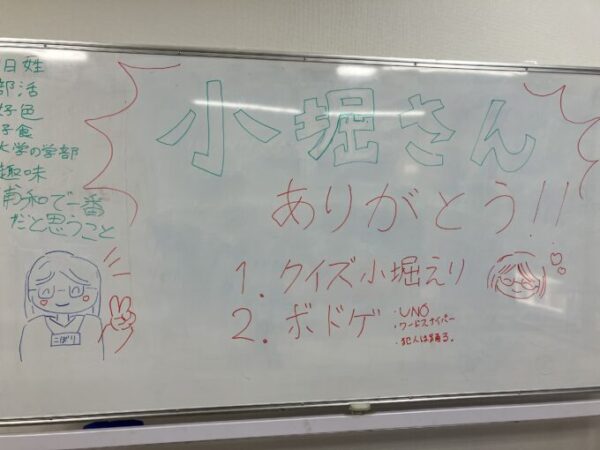 旧姓
部活
好色
好食
大学の学部
趣味
浦和で一番
だと思うこと
小堀さん
ありがとう!!
1. クイズ小堀えり
2. ボドゲ
・UNO
・ワードスナイパー
・犯人は踊る。
こぼり